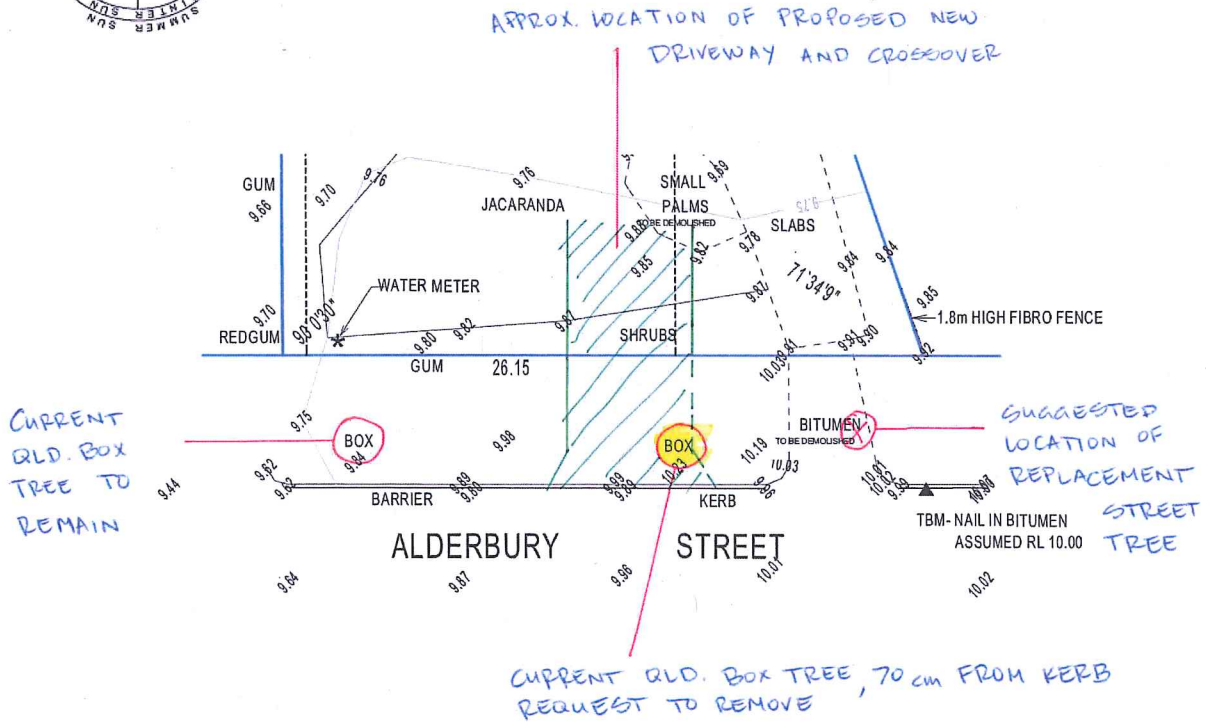 SUMMER SUN
WINTER SUN
APPROX. LOCATION OF PROPOSED NEW
DRIVEWAY AND CROSSOVER
GUM
9.66
9.70
9.76
9.76
JACARANDA
SMALL
PALMS
TO BE DEMOLISHED
9.69
9.75
SLABS
9.88
9.82
9.78
9.85
9.84
9.84
71°34'9"
9.87
9.85
WATER METER
1.8m HIGH FIBRO FENCE
9.70
REDGUM
90°0'30"
9.80
9.82
9.87
SHRUBS
10.03
9.81
9.91
9.90
9.92
GUM
26.15
CURRENT
QLD. BOX
TREE TO
REMAIN
9.75
BOX
9.84
9.98
BOX
10.23
10.19
BITUMEN
TO BE DEMOLISHED
SUGGESTED
LOCATION OF
REPLACEMENT
STREET
TREE
9.44
9.62
9.62
BARRIER
9.89
9.80
9.99
KERB
10.03
10.01
10.02
9.99
TBM- NAIL IN BITUMEN
ASSUMED RL 10.00
ALDERBURY STREET
9.64
9.87
9.96
10.01
10.02
CURRENT QLD. BOX TREE, 70 cm FROM KERB
REQUEST TO REMOVE